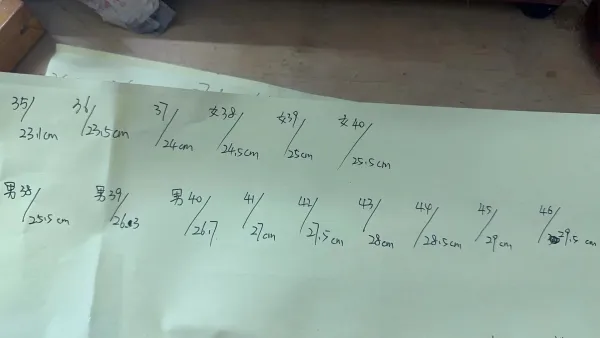 35/23.1cm 36/23.5cm 37/24cm 女38/24.5cm 女39/25cm 女40/25.5cm
男38/25.5cm 男39/26.3 男40/26.7 41/27cm 42/27.5cm 43/28cm 44/28.5cm 45/29cm 46/29.5cm